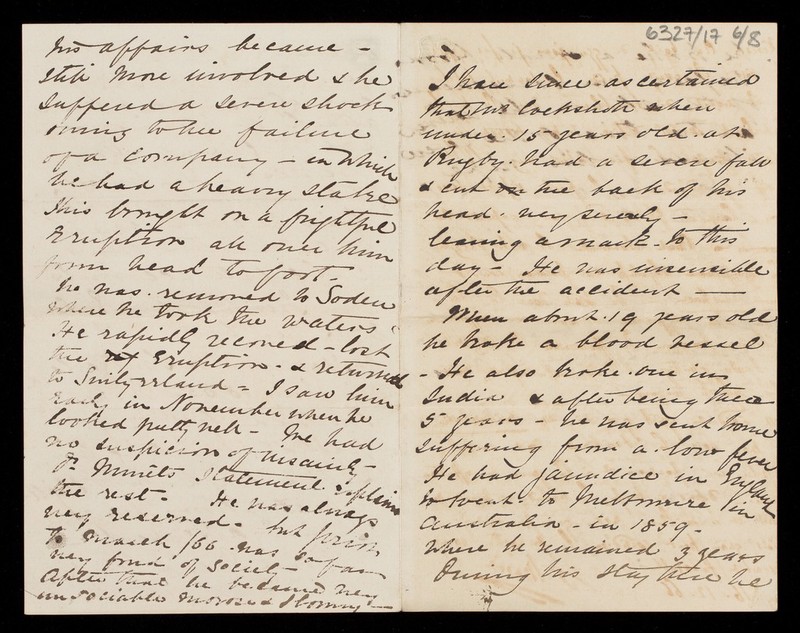 his affairs became -
still more involved & he
suffered a severe shock
owing to the failure
of a company - in which
he had a heavy stake
This brought on a frightful
eruption all over him
from head to foot -
he was removed to Soden
where he took the waters
He rapidly recovered - lost
the eruption - & returned
to Switzerland - I saw him
early in November when he
looked pretty well - We had
no suspicion of insanity -
Dr statement explains
the rest - He was always
very reserved - but prior
to March /66 was so far
very fond of society -
After that he became very
unsociable morose & gloomy -
6327/17 6/8
I have since ascertained
that Mr Cockshott when
under 15 years old - at
Rugby - had a severe fall
& cut the back of his
head - very severely -
leaving a mark - to this
day - He was insensible
after the accident -
When about 19 years old
he broke a blood vessel
- He also broke one in
India & after being there
5 years - he was sent home
suffering from a low fever
He had jaundice in England
& went to Melbourne in
Australia - in 1859 -
where he remained 3 years
During his stay there he